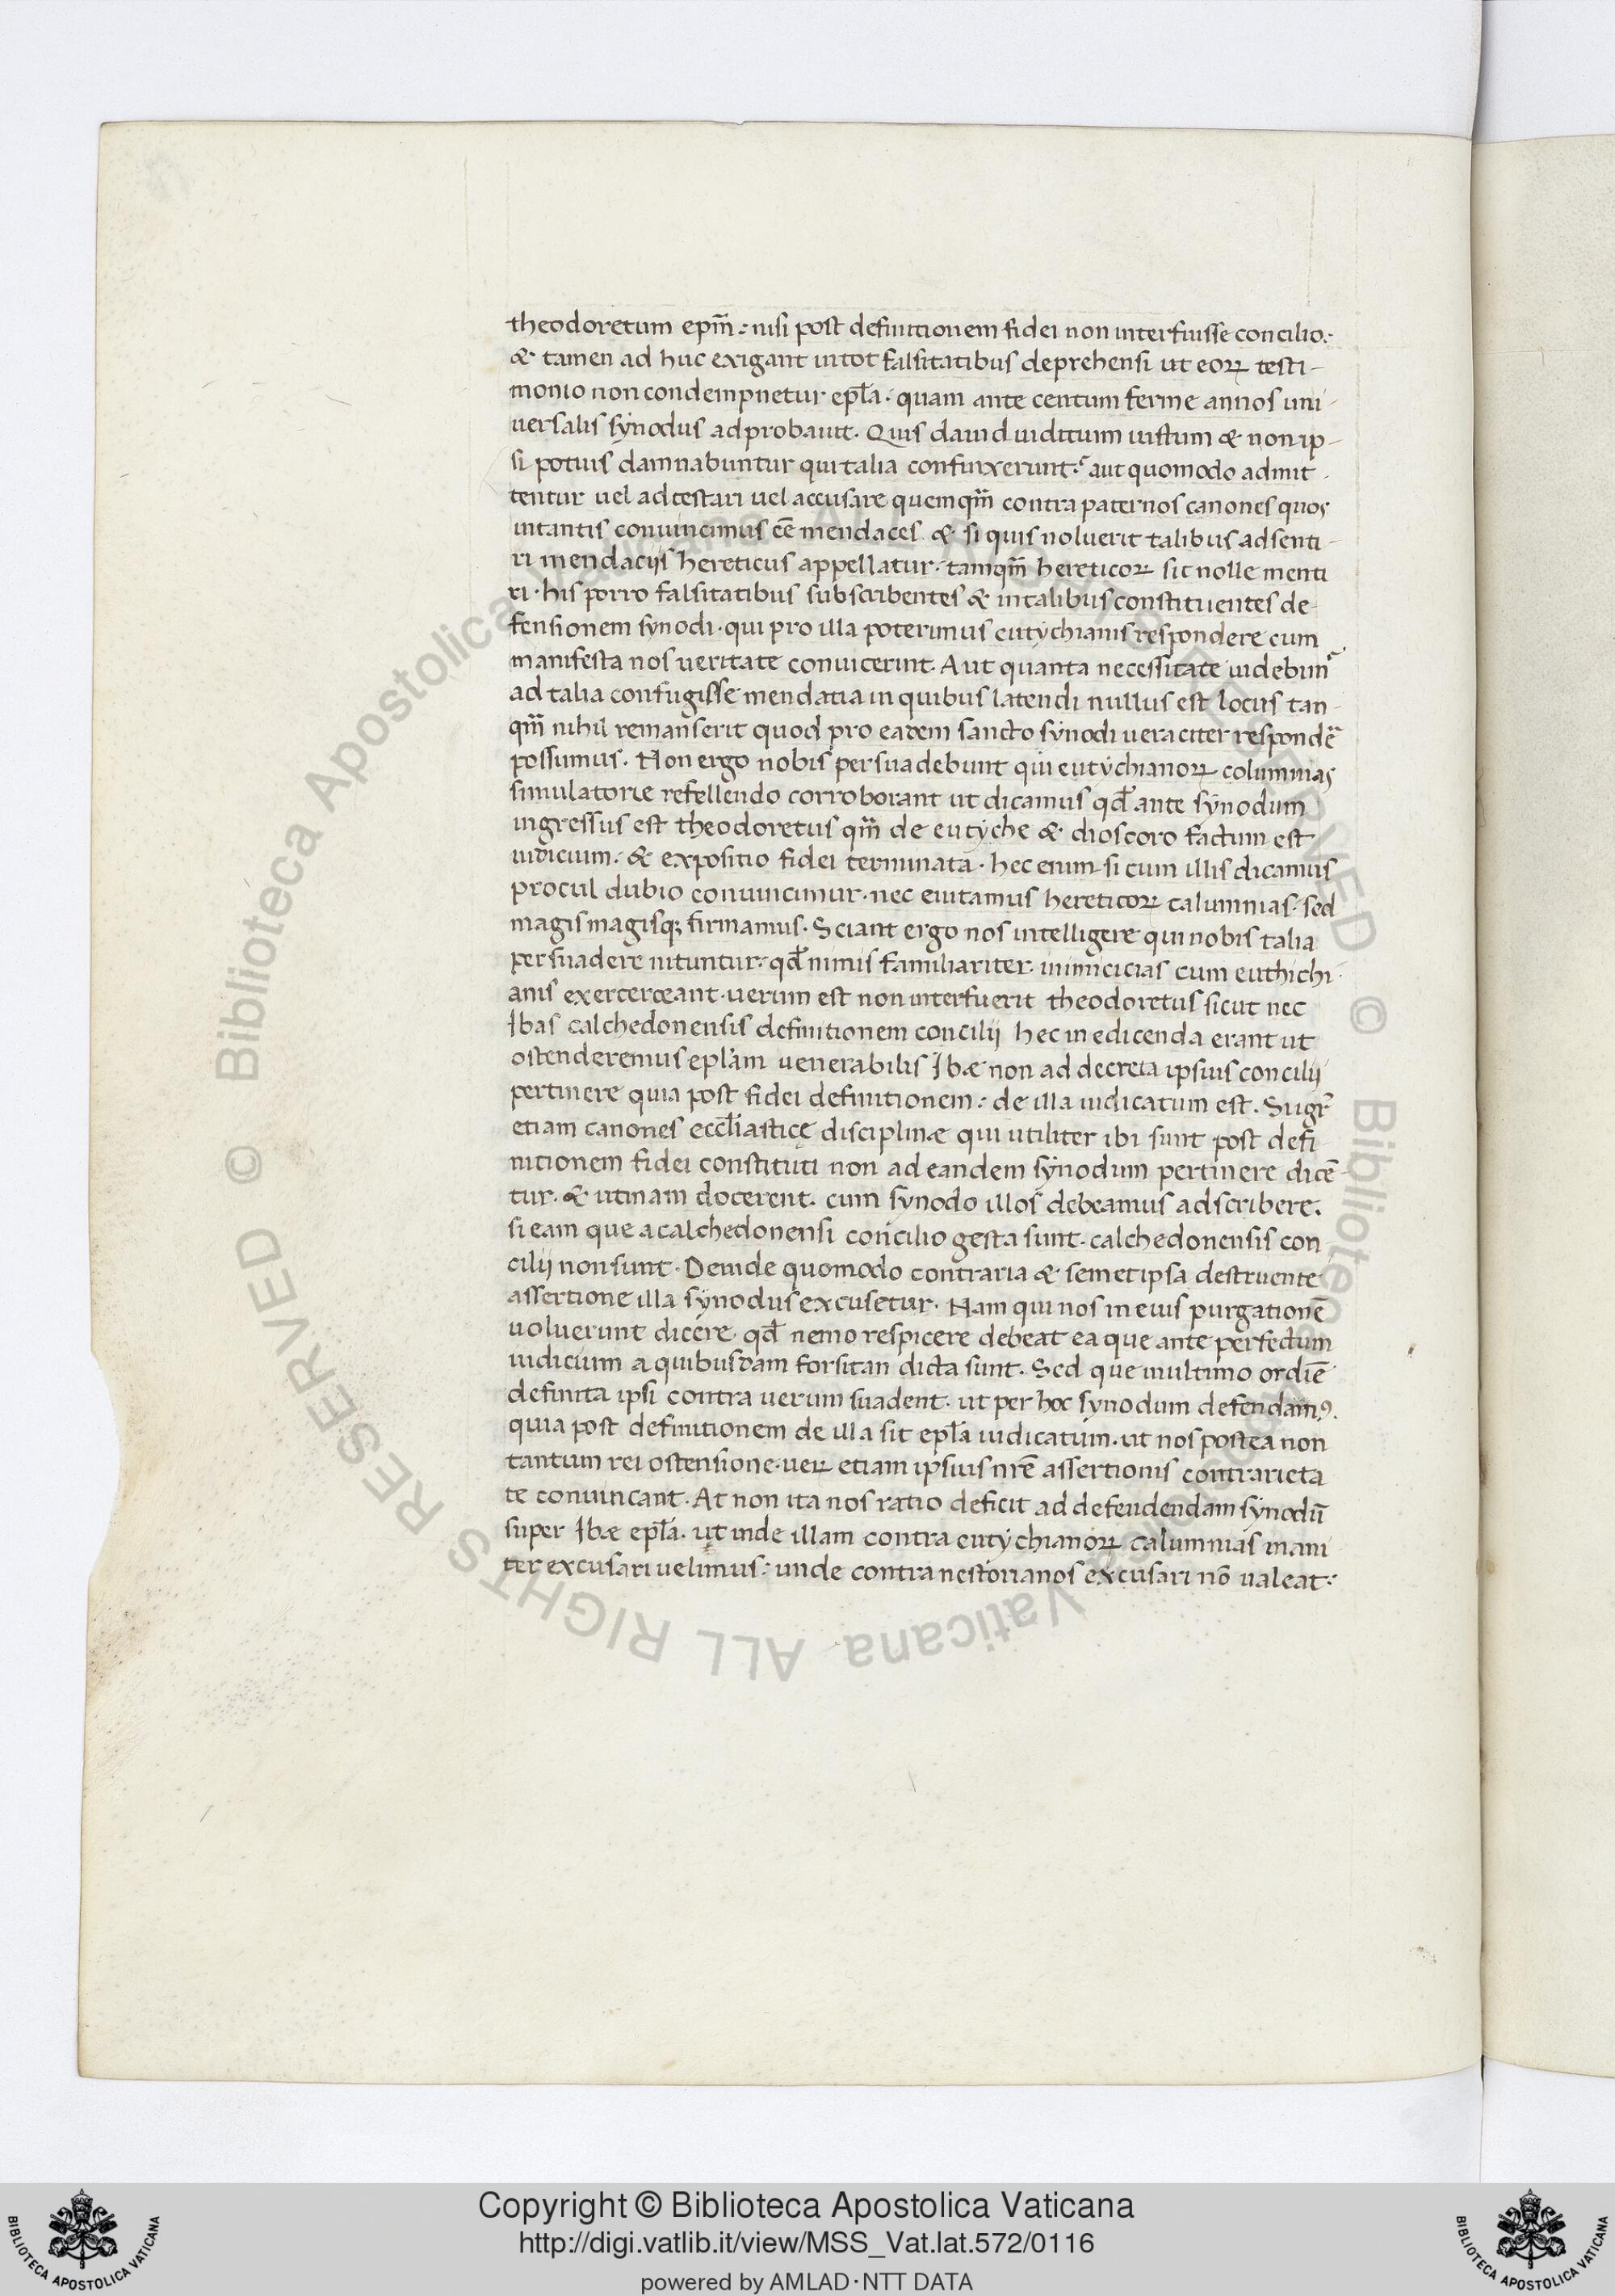 theodoretum epm̄ : nisi post definitionem fidei non interfuisse concilio :
& tamen ad huc exigant in tot falsitatibus deprehensi ut eoꝝ testi-
monio non condempnetur epl̄a · quam ante centum ferme annos uni-
uersalis synodus adprobauit. Quis dauid uiditum iustum & non ip-
si potius damnabuntur qui talia confinxerunt : aut quomodo admit-
tentur uel adtestari uel accusare quemqm̄ contra paternos canones quos
intantis conuincimus eē mendaces & si quis noluerit talibus adsenti-
ri mendaciis hereticus appellatur · tamqm̄ hereticoꝝ sit nolle menti
ri · his porro falsitatibus subscribentes & in talibus constituentes de-
fensionem synodi · qui pro illa poterimus eutychianis respondere cum
manifesta nos ueritate conuicerint. Aut quanta necessitate uidebim̃
ad talia confugisse mendatia in quibus latendi nullus est locus tan-
qm̄ nihil remanserit quod pro eadem sancto synodi ueraciter respondē
possumus. Non ergo nobis persuadebunt qui eutychianoꝝ columnias
simulatorie refellendo corroborant ut dicamus qđ ante synodum
ingressus est theodoretus qm̄ de eutyche & dioscoro factum est
iudicium · & expositio fidei terminata · hec enim si cum illis dicamus
procul dubio conuincimur · nec euitamus hereticoꝝ calumnias · sed
magis magisq; firmamus. Sciant ergo nos intelligere qui nobis talia
persuadere nituntur : qđ nimis familiariter inimicicias cum euthichi-
anis exercerceant · uerum est non interfuerit theodoretus sicut nec
Ibas calchedonensis definitionem concilij hec in edicenda erant ut
ostenderemus epl̄am venerabilis Ibæ non ad decreta ipsius concilij
pertinere quia post fidei definitionem : de illa iudicatum est. Sugr̃
etiam canones eccl̄iasticę disciplinæ qui utiliter ibi sunt post defi
nitionem fidei constituti non ad eandem synodum pertinere dicē-
tur. & utinam docerent. cum synodo illos debeamus adscribere.
si eam que a calchedonensi concilio gesta sunt. calchedonensis con
cilij non sunt. Deinde quomodo contraria & semet ipsa destruente
assertione illa synodus excusetur. Nam qui nos in eius purgationē
uoluerunt dicere. qđ nemo respicere debeat ea que ante perfectum
iudicium a quibusdam forsitan dicta sunt. Sed que in ultimo ordīe
definita ipsi contra uerum suadent. ut per hoc synodum defendamꝰ.
quia post definitionem de illa sit epl̄a iudicatum. ut nos postea non
tantum rei ostensione · ueꝝ etiam ipsius nrē assertionis contrarieta
te conuincant. At non ita nos ratio deficit ad defendendam synodū
super Ibæ epl̄a. ut inde illam contra eutychianoꝝ calumnias inani
ter excusari uelimus : unde contra nestorianos excusari nō ualeat :
© Biblioteca Apostolica Vaticana ALL RIGHTS RESERVED © Biblioteca Apostolica Vaticana ALL RIGHTS RESERVED
Copyright © Biblioteca Apostolica Vaticana
http://digi.vatlib.it/view/MSS_Vat.lat.572/0116
powered by AMLAD·NTT DATA
BIBLIOTECA APOSTOLICA VATICANA
BIBLIOTECA APOSTOLICA VATICANA